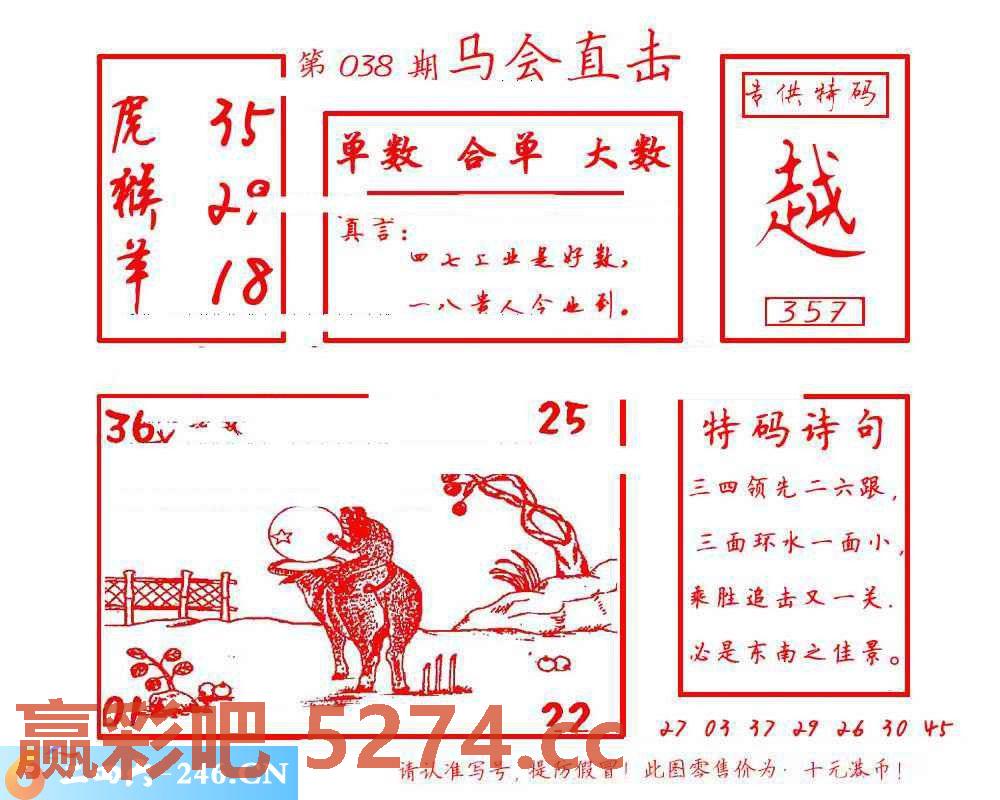 第 038 期 马会直击
虎 35
猴 29
羊 18
单数 合单 大数
真言：
四七工业是好数，
一八贵人今业到。
专供特码
越
357
36
25
01
22
特码诗句
三四领先二六跟，
三面环水一面小，
乘胜追击又一关.
必是东南之佳景。
27 03 37 29 26 30 45
赢彩吧 5274.cc
-246.CN
请认准写号，提防假冒！此图零售价为·十元港币！